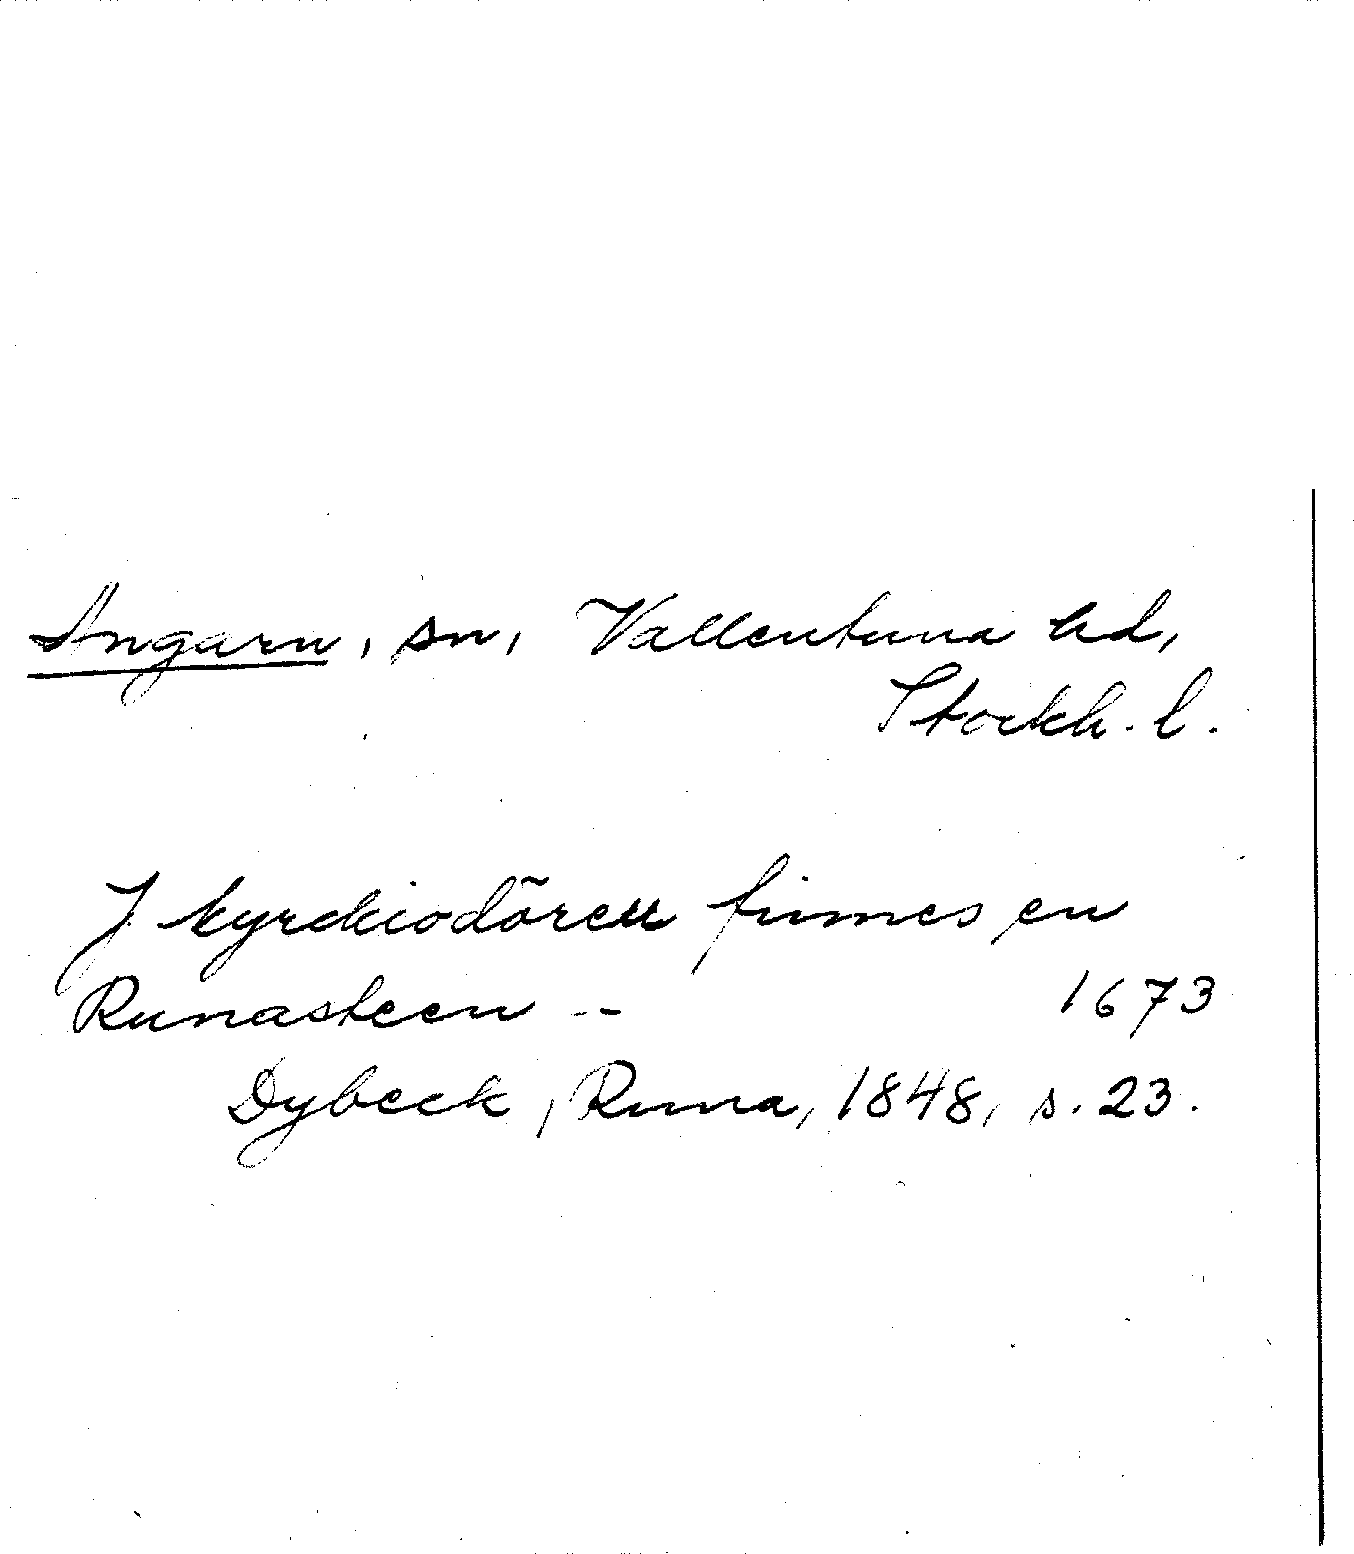 Angarn, sn, Vallentuna hd,
Stockh. l.
J kyrckiodören finnes en
Runasteen -- 1673
Dybeck, Runa, 1848, s. 23.